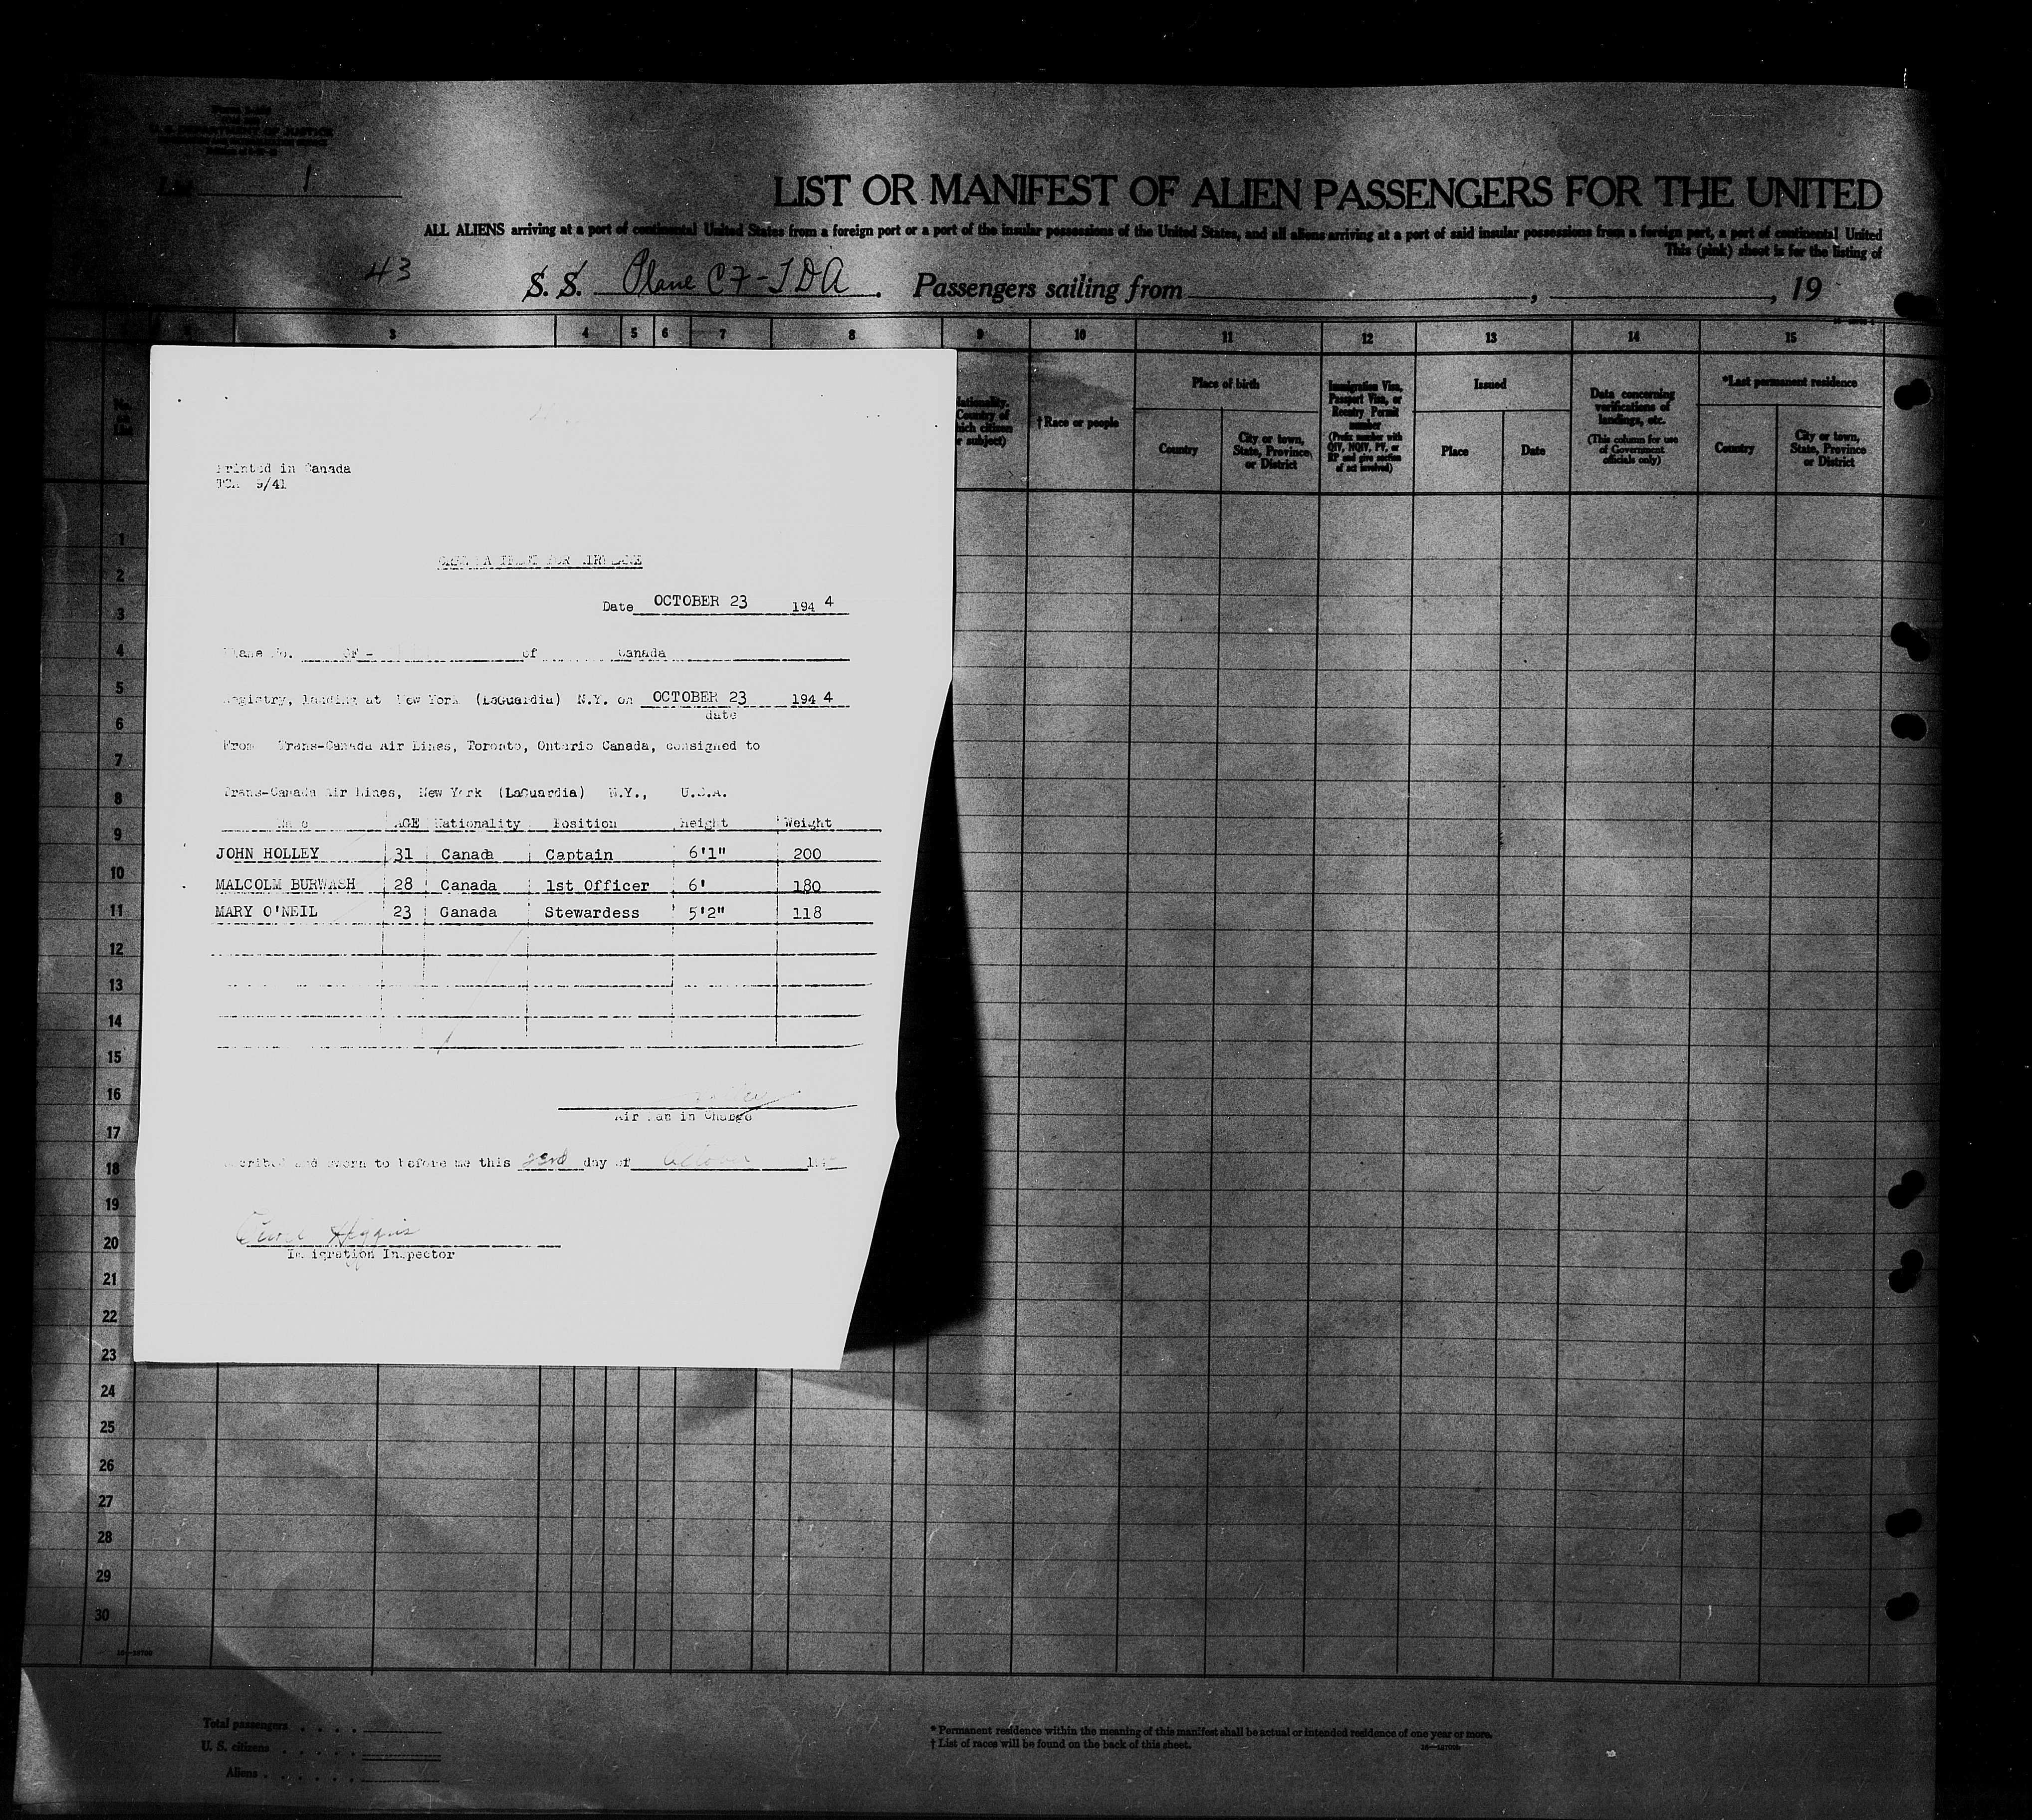 U.S. DEPARTMENT OF JUSTICE
List 1
LIST OR MANIFEST OF ALIEN PASSENGERS FOR THE UNITED
ALL ALIENS arriving at a port of continental United States from a foreign port or a port of the insular possessions of the United States, and all aliens arriving at a port of said insular possessions from a foreign port, a port of continental United
This (pink) sheet is for the listing of
43 S. S. Plane CF-TDA. Passengers sailing from , , 19
3 4 5 6 7 8 9 10 11 12 13 14 15
No. on List
Nationality. Country of which citizen or subject)
†Race or people
Place of birth
Country
City or town, State, Province or District
Immigration Visa, Passport Visa, or Reentry Permit number
(Prefix number with QIV, NQIV, PV, or RP and give section of act involved)
Issued
Place
Date
Data concerning verifications of landings, etc.
(This column for use of Government officials only)
*Last permanent residence
Country
City or town, State, Province or District
Printed in Canada
TCA 9/41
FOR AIRPLANE
Date OCTOBER 23 194 4
Plane No. CF - of Canada
Registry, landing at New York (LaGuardia) N.Y. on OCTOBER 23 194 4
date
From Trans-Canada Air Lines, Toronto, Ontario Canada, consigned to
Trans-Canada Air Lines, New York (LaGuardia) N.Y., U.S.A.
Name AGE Nationality Position Height Weight
JOHN HOLLEY 31 Canada Captain 6'1" 200
MALCOLM BURWASH 28 Canada 1st Officer 6' 180
MARY O'NEIL 23 Canada Stewardess 5'2" 118
Air Man in Charge
scribed and sworn to before me this 23rd day of October
Higgins
Immigration Inspector
1
2
3
4
5
6
7
8
9
10
11
12
13
14
15
16
17
18
19
20
21
22
23
24
25
26
27
28
29
30
16—18700
Total passengers . . . .
U. S. citizens . . . . .
Aliens . . . . . .
* Permanent residence within the meaning of this manifest shall be actual or intended residence of one year or more.
† List of races will be found on the back of this sheet.